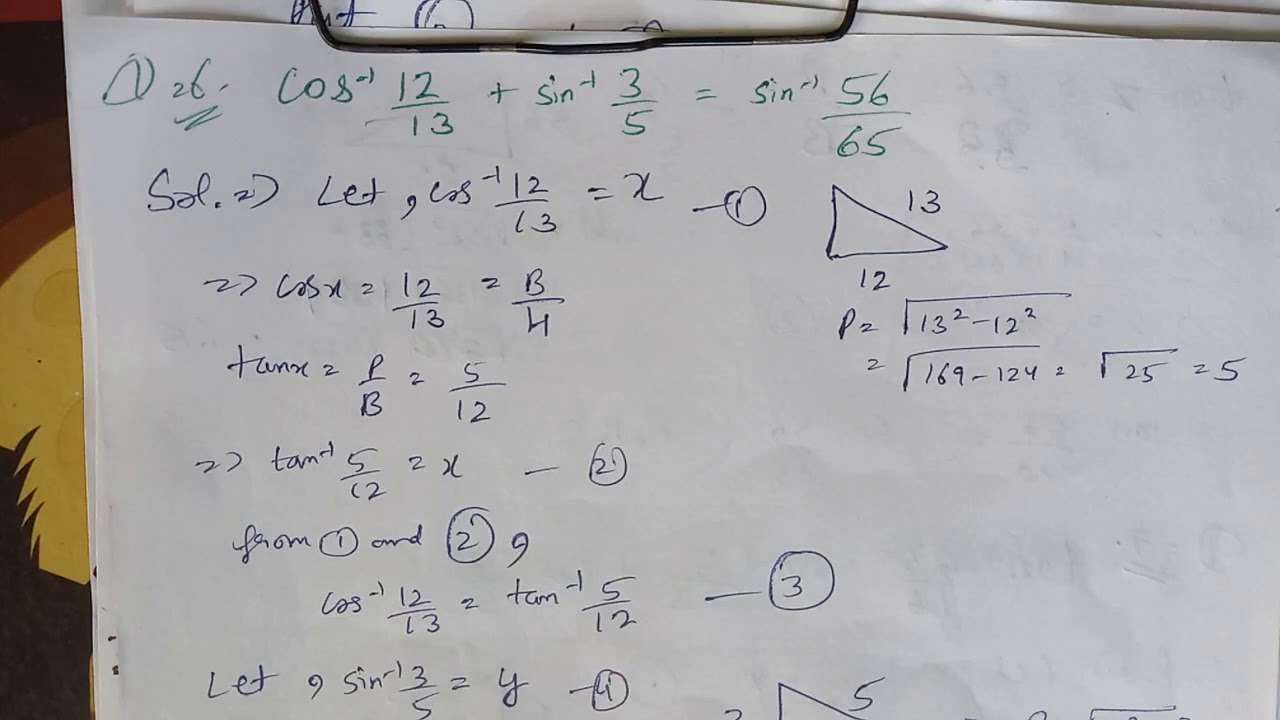 ① 26. cos⁻¹ 12/13 + sin⁻¹ 3/5 = sin⁻¹ 56/65
Sol. => Let, cos⁻¹ 12/13 = x —①
13
12
=> cosx = 12/13 = B/H
P = √13² - 12²
= √169 - 124 = √25 = 5
tanx = P/B = 5/12
=> tan⁻¹ 5/12 = x — ②
from ① and ②,
cos⁻¹ 12/13 = tan⁻¹ 5/12 — ③
Let, sin⁻¹ 3/5 = y —④
5